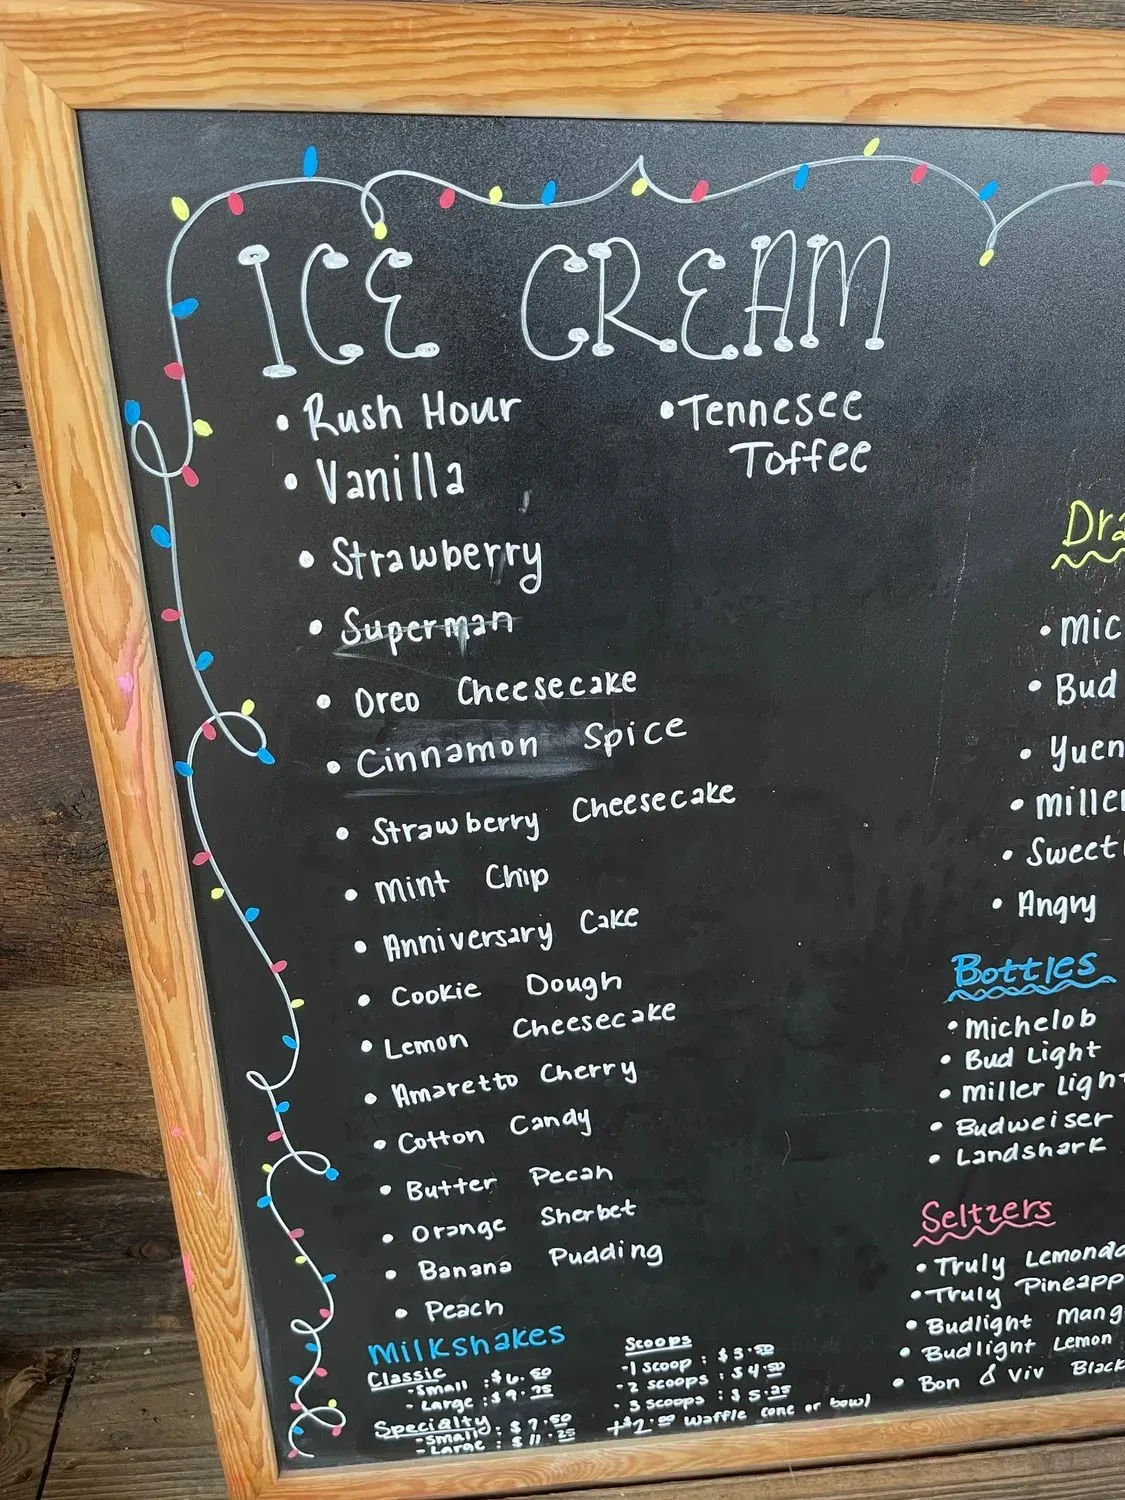 ICE CREAM
• Rush Hour
• Vanilla
• Strawberry
• Superman
• Oreo Cheesecake
• Cinnamon Spice
• Strawberry Cheesecake
• Mint Chip
• Anniversary Cake
• Cookie Dough
• Lemon Cheesecake
• Amaretto Cherry
• Cotton Candy
• Butter Pecan
• Orange Sherbet
• Banana Pudding
• Peach
• Tennesee
Toffee
Milkshakes
Classic
-Small : $6.50
-Large : $9.75
Specialty
-Small : $7.50
-Large : $11.25
Scoops
-1 scoop : $3.50
-2 scoops : $4.50
-3 scoops : $5.25
+$2.00 Waffle cone or bowl
Dra
• Mic
• Bud
• Yuen
• Miller
• Sweet
• Angry
Bottles
• Michelob
• Bud Light
• Miller Light
• Budweiser
• Landshark
Seltzers
• Truly Lemonad
• Truly Pineapp
• Budlight Mang
• Budlight Lemon
• Bon & Viv Black